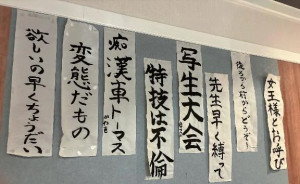 女王様とお呼び
後ろから行からどうぞ
先生早く縛って
写生大会
特技は不倫
痴漢車トーマス
変態だもの
欲しいの早くちょうだい